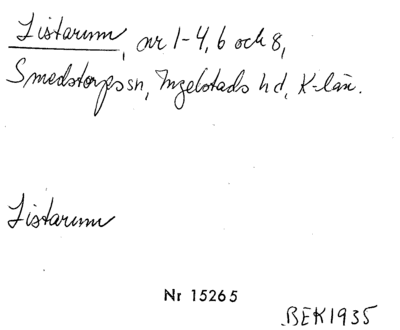 Listarum, nr 1-4, 6 och 8,
Smedstorps sn, Ingelstads hd, K-län.
Listarum
Nr 15265
BEK1935